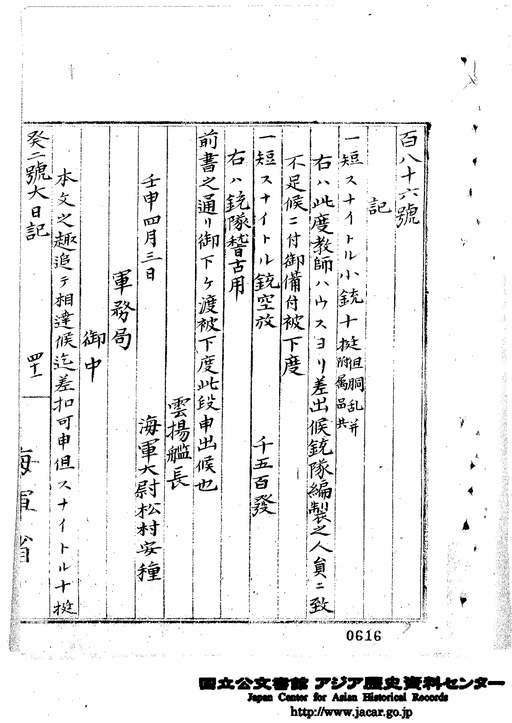 百八十六號
記
一短スナイトル小銃十挺但胴乱并附属品共
右ハ此度教師ハウスヨリ差出候銃隊編製之人員ニ致
不足候ニ付御備付被下度
一短スナイトル銃空放 千五百發
右ハ銃隊稽古用
前書之通リ御下ケ渡被下度此段申出候也
雲揚艦長
壬申四月三日 海軍大尉松村安種
軍務局
御中
本文之趣追テ相達候迄差扣可申但スナイトル十挺
癸二號大日記 四十一 海軍省
0616
国立公文書館 アジア歴史資料センター
Japan Center for Asian Historical Records
http://www.jacar.go.jp